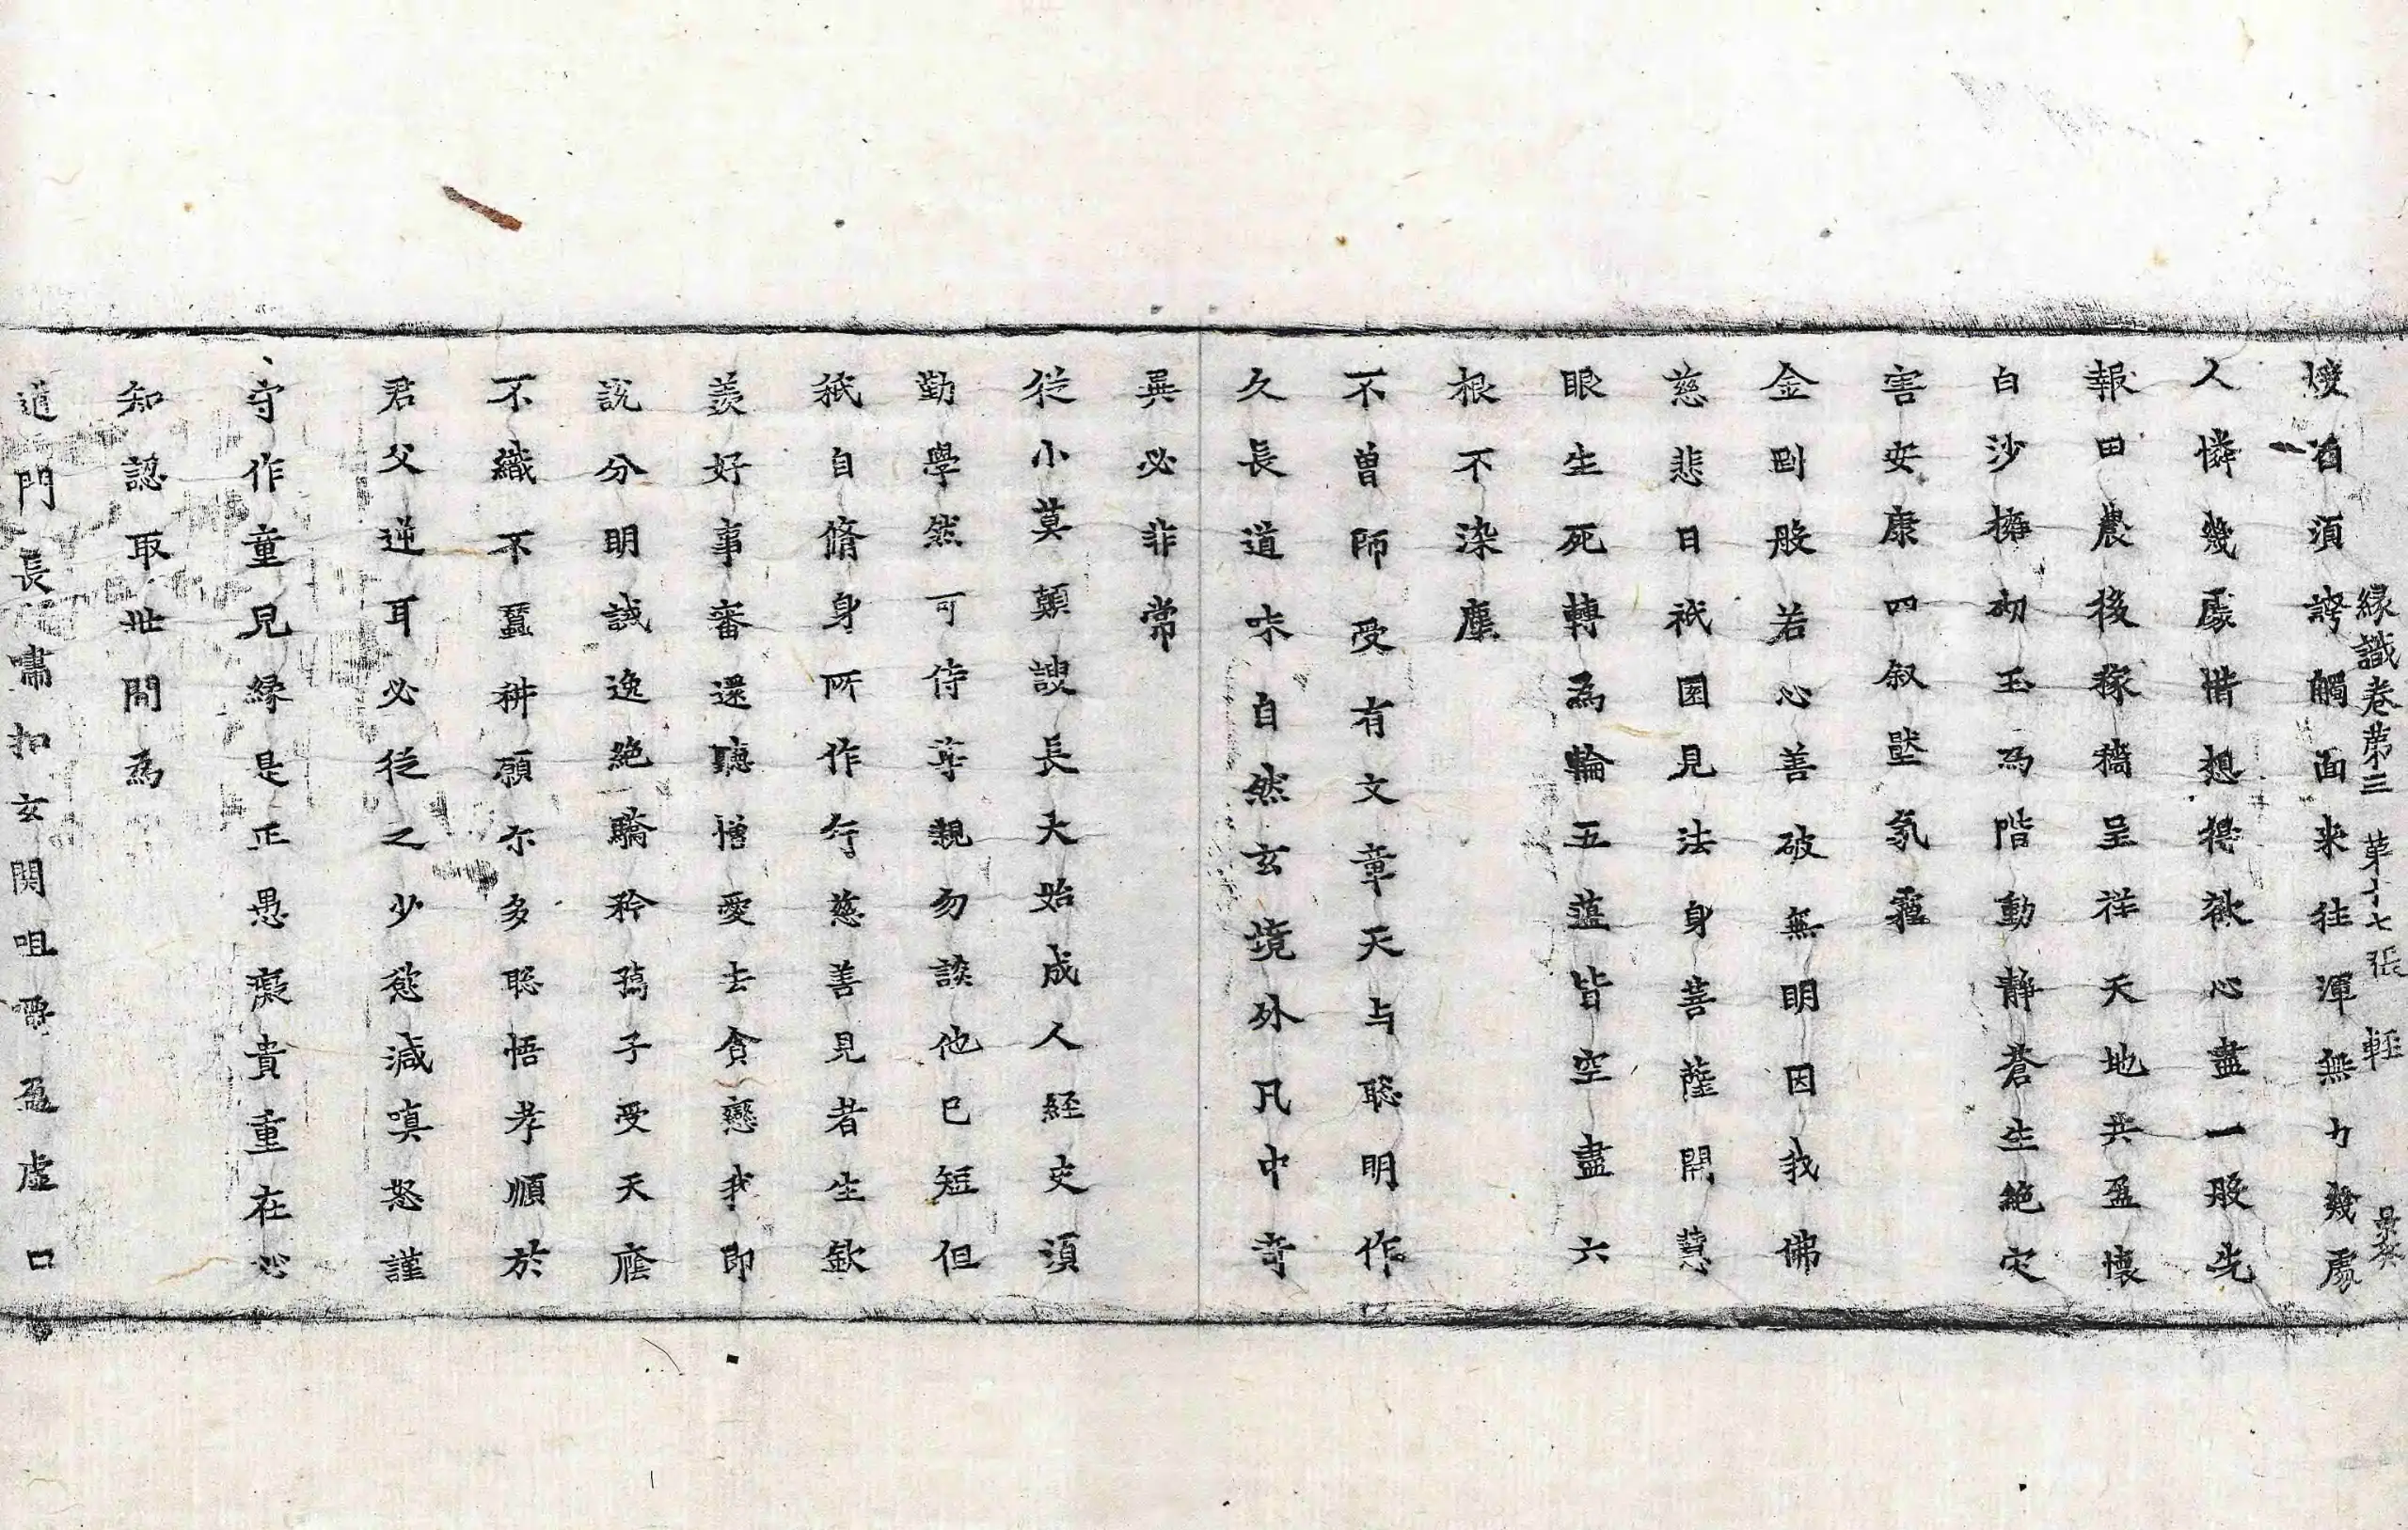 緣識卷第三 第十七張 輕
𤍠首須誇觸面来往渾無力幾處
人憐幾處惜想得欲心盡一般先
報田農後稼穡呈祥天地共盈懷
白沙擁砌玉為階動靜蒼生絕灾
害安康四叙墜氛霾
金剛般若心善破無明因我佛
慈悲日祇園見法身菩薩開慧
眼生死轉為輪五蘊皆空盡六
根不染塵
不曾師受有文章天与聡明作
久長道味自然玄境外凡中奇
異必非常
従小莫顛謏長大始成人経史須
勤學然可侍尊親勿談他已短但
秖自脩身所作行慈善見者生欽
羨好事審還聽憎愛去貪戀我即
說分明誡逸絕驕矜孺子受天癊
不織不蠶耕願尓多聡悟孝順於
君父逆耳必従之少慾減嗔怒謹
守作童見緣是正愚癡貴重在心
知認取世間為
道門長嘯扣玄関咀嚼盈虛口